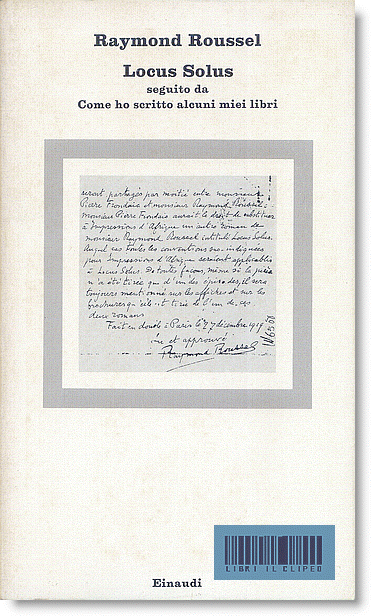 Raymond Roussel
Locus Solus
seguito da
Come ho scritto alcuni miei libri
seront partagés par moitié entre monsieur
Pierre Frondaie et monsieur Raymond Roussel.
monsieur Pierre Frondaie aurait le droit de substituer
à Impressions d'Afrique un autre roman de
monsieur Raymond Roussel intitulé Locus Solus.
auquel cas toutes les conventions sus-indiquées
pour Impressions d'Afrique seraient applicables
à Locus Solus. De toutes façons, même si la pièce
n'a été tirée que d'un des épisodes, il sera
toujours mentionné sur les affiches et sur les
brochures qu'elle est tirée de l'un de ces
deux romans
Fait en double à Paris le 7 décembre 1919
lu et approuvé
Raymond Roussel
Einaudi
LIBRI IL CLIPEO